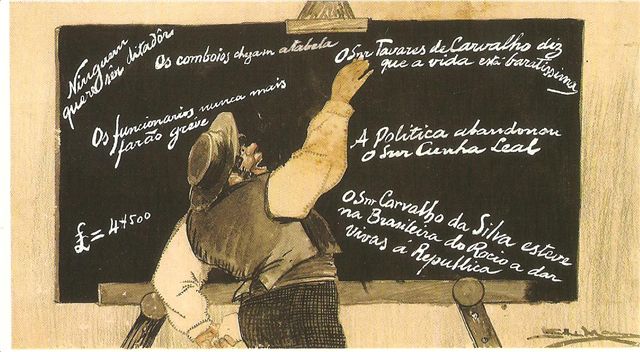 Ninguem
quer sêr ditadôr
Os comboios chegam á tabela
O Snr Tavares de Carvalho diz
que a vida está baratissima
Os funcionarios nunca mais
farão greve
A Politica abandonou
O Snr Cunha Leal
£ = 4$500
O Snr Carvalho da Silva esteve
na Brasileira do Rocio a dar
Vivas á Republica